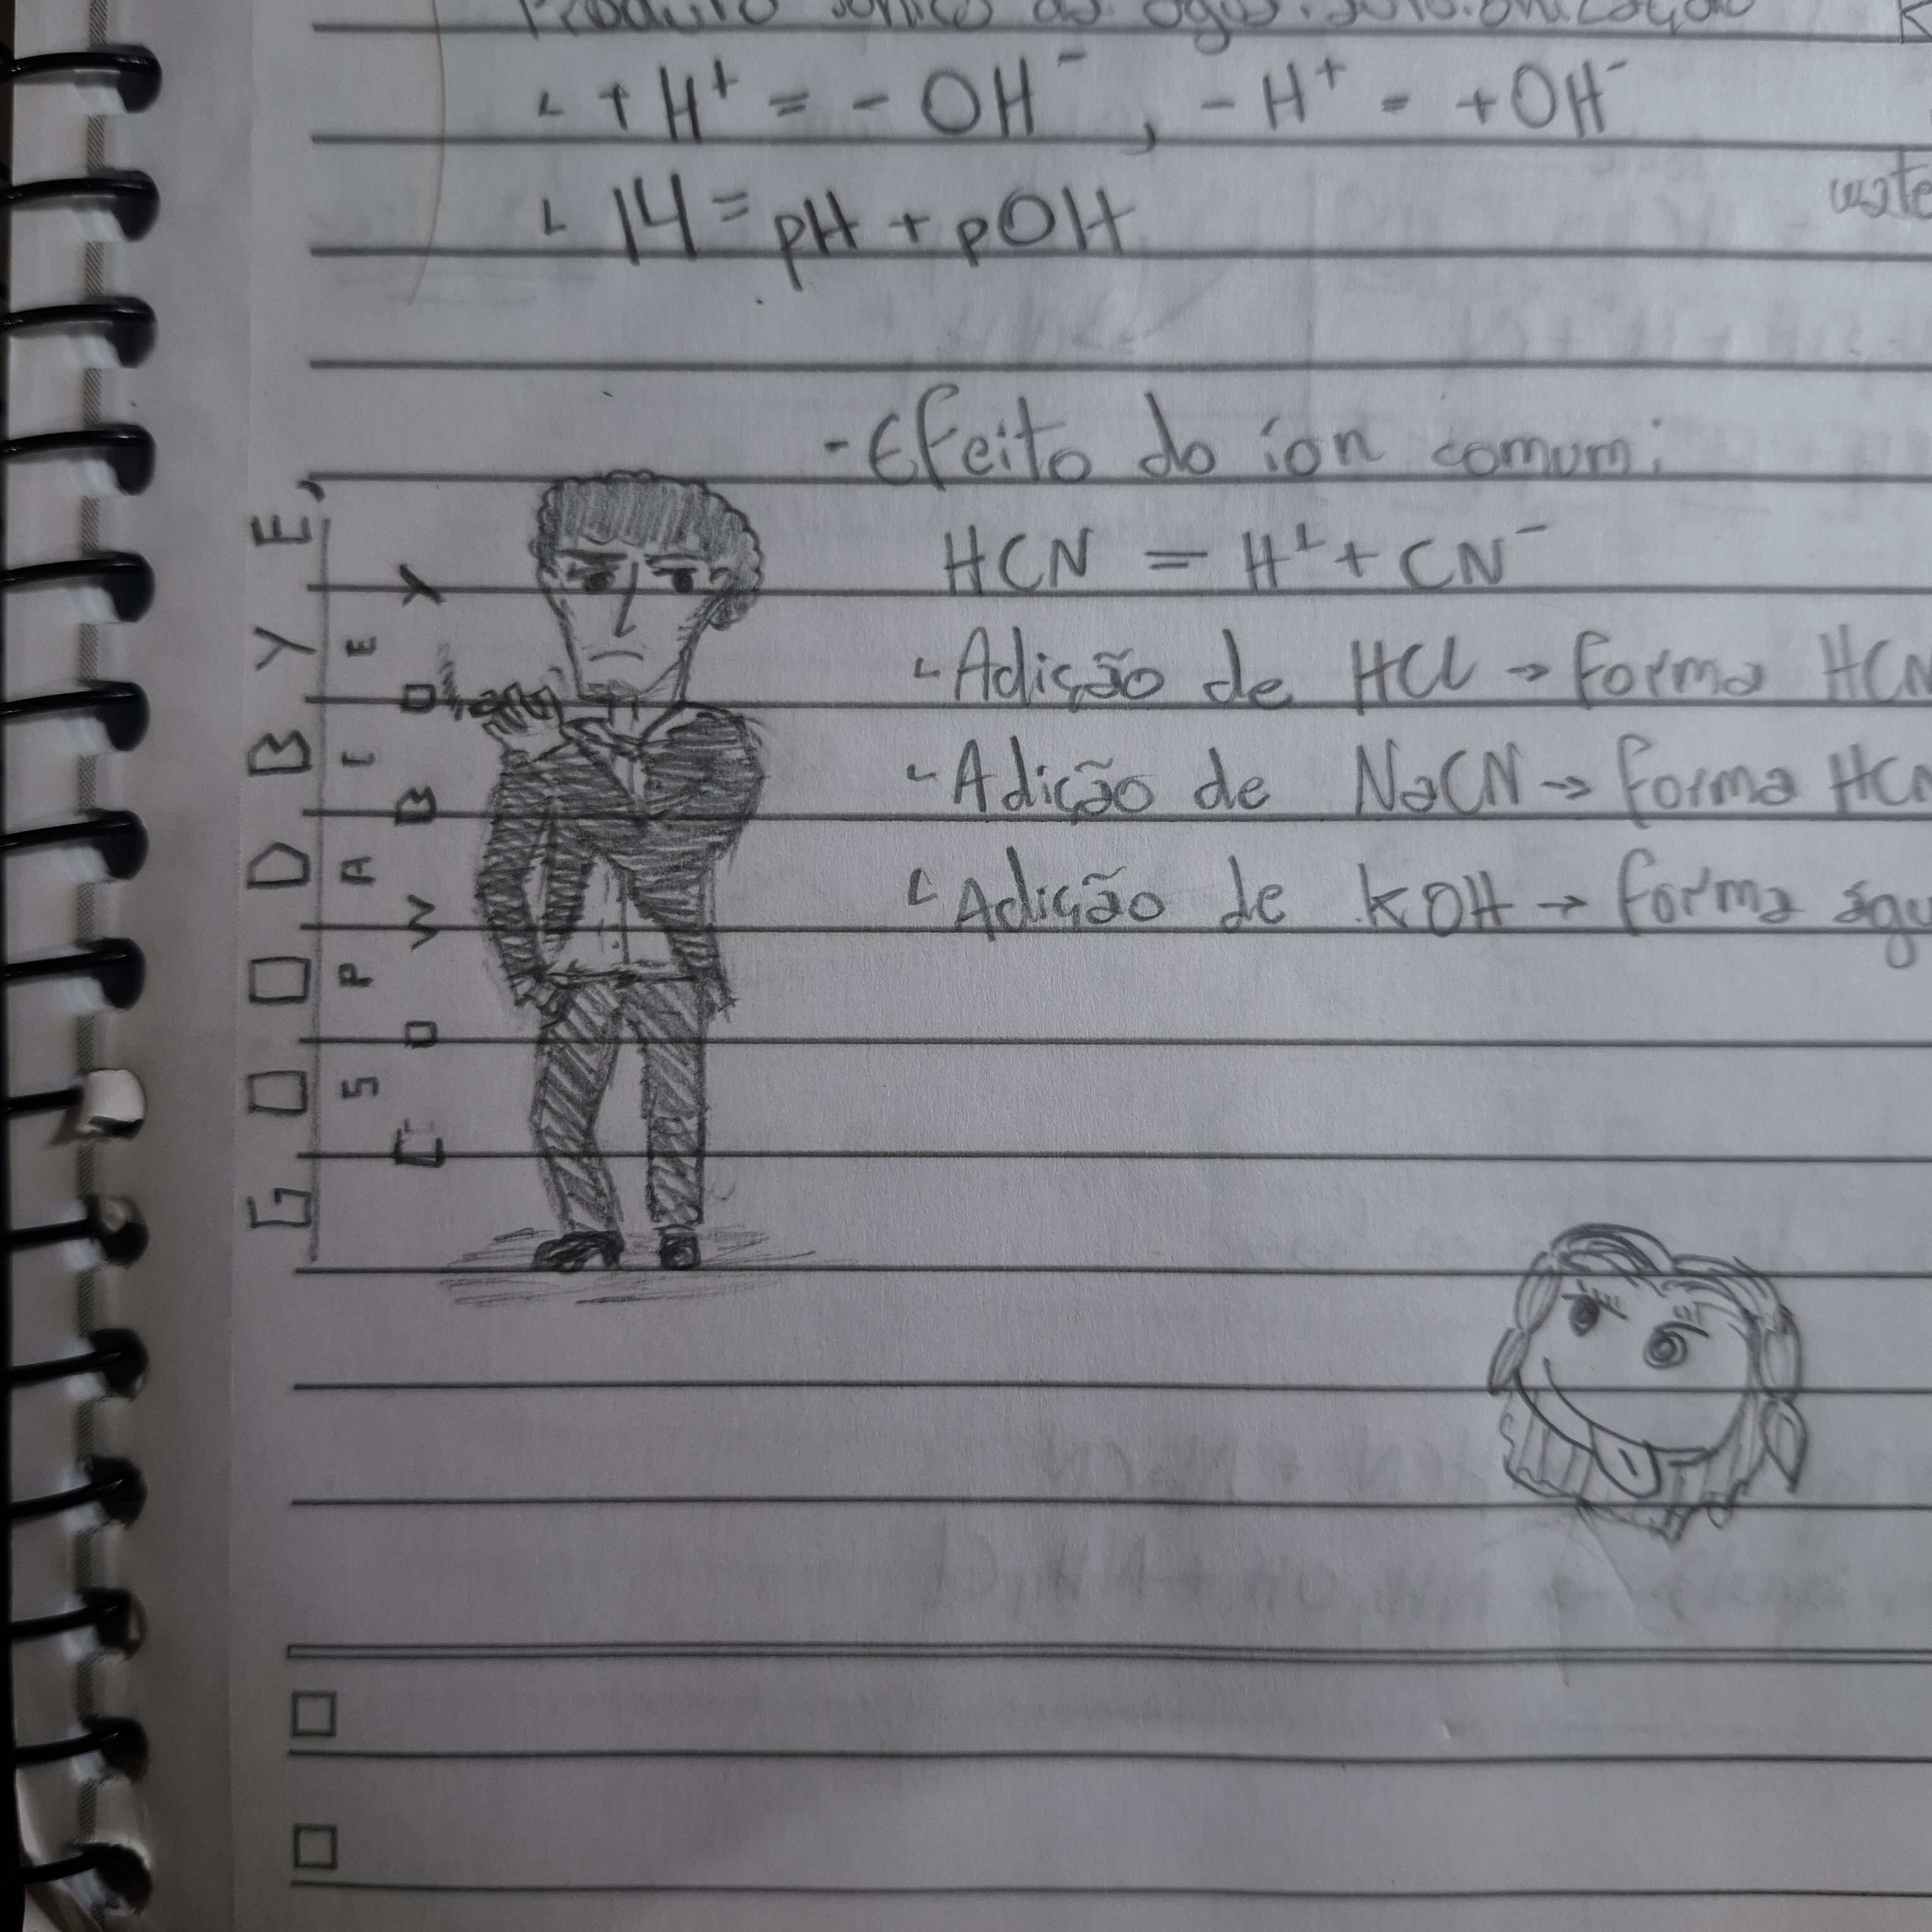 Produto iônico da água: autoionização K
└ +H⁺ = - OH⁻ , - H⁺ = +OH⁻
└ 14 = pH + pOH
wate
- Efeito do íon comum:
HCN = H⁺ + CN⁻
└ Adição de HCl → forma HCN
└ Adição de NaCN → forma HCN
└ Adição de KOH → forma águ
GOODBYE,
SPACE
COWBOY